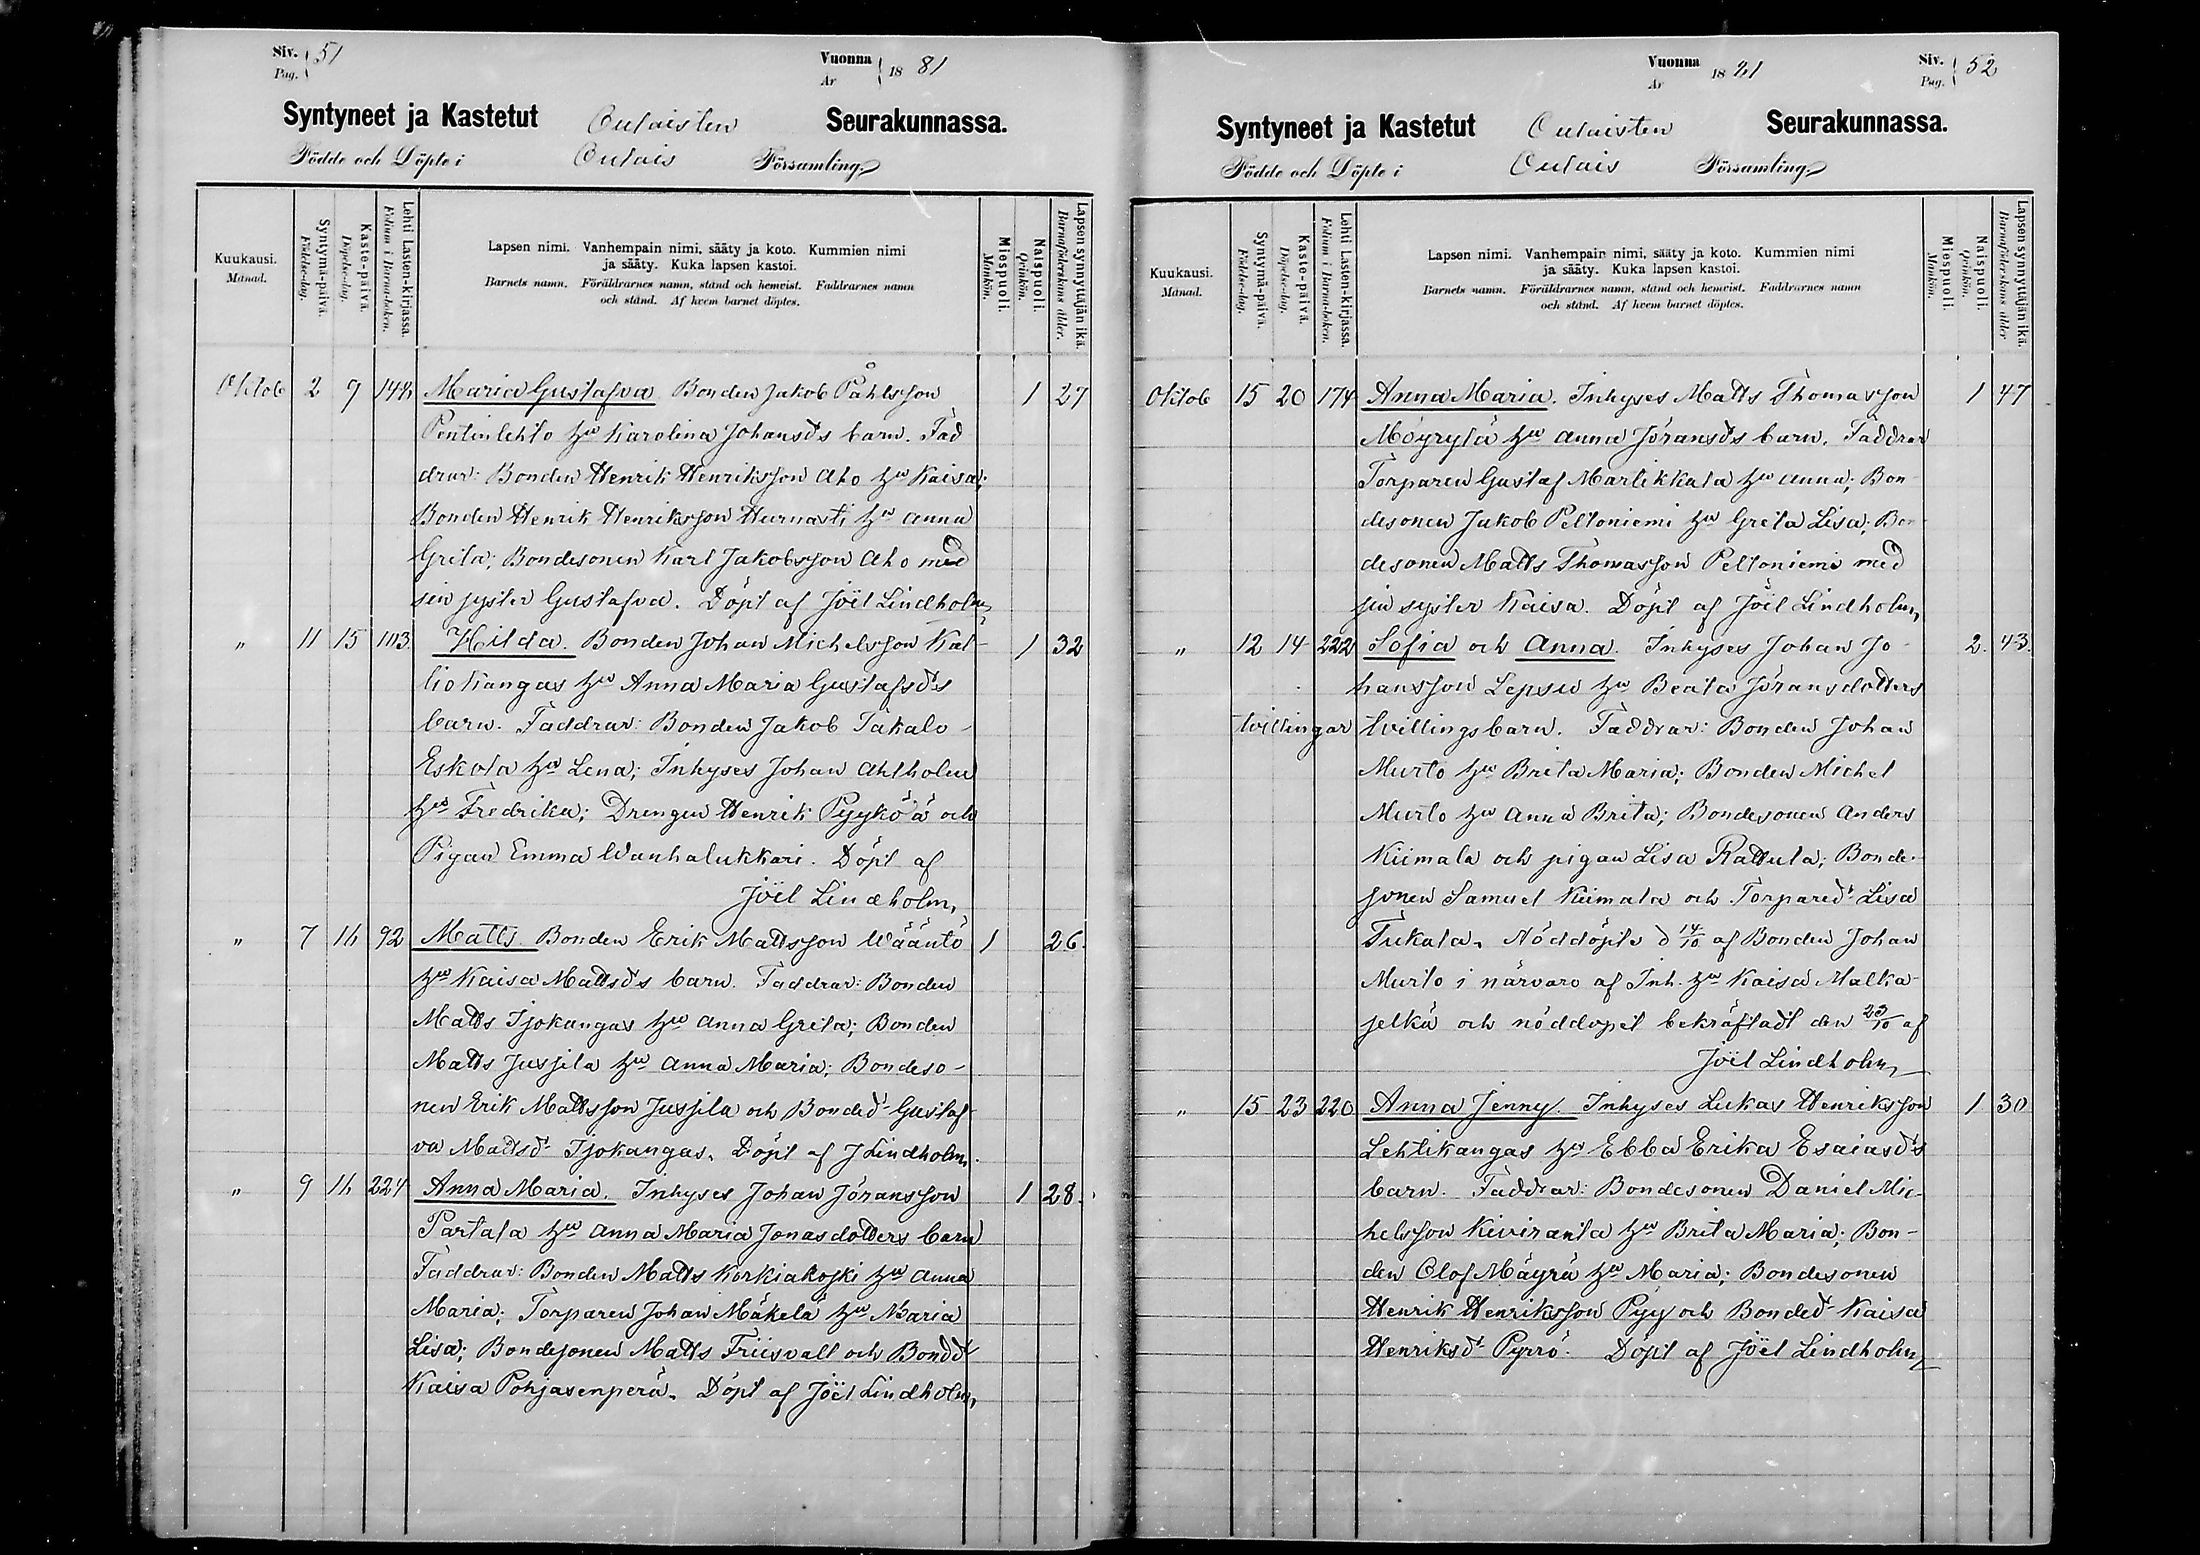 Siv. 51
Pag.
Vuonna 1881
År
Syntyneet ja Kastetut Oulaisten Seurakunnassa.
Födde och Döpte i Oulais Församling
Kuukausi.
Månad.
Syntymä-päivä.
Födelse-dag.
Kaste-päivä.
Döpelse-dag.
Lehti Lasten-kirjassa.
Folium i Barna-boken.
Lapsen nimi. Vanhempain nimi, sääty ja koto. Kummien nimi
ja sääty. Kuka lapsen kastoi.
Barnets namn. Föräldrarnes namn, stånd och hemvist. Faddrarnes namn
och stånd. Af hvem barnet döptes.
Miespuoli.
Mankön.
Naispuoli.
Qvinkön.
Lapsen synnyttäjän ikä.
Barnaföderskans ålder.
Oktob 2 9 Maria Gustafva Bonden Jakob Påhlsson 1 27
Pentinlehto hu Karolina Johansds barn. Fad
drar: Bonden Henrik Henriksson Aho hu Kaisa;
Bonden Henrik Henriksson Hurnasti hu Anna
Greta; Bondesonen Karl Jakobsson Aho med
sin syster Gustafva. Döpt af Joël Lindholm,
" 11 15 103 Hilda. Bonden Johan Michelsson Kal- 1 32
liokangas hu Anna Maria Gustafsds
barn. Faddrar: Bonden Jakob Takalo-
Eskola hu Lena; Inhyses Johan Ahlholm
hu Fredrika; Drengen Henrik Pyykö'ä och
Pigan Emma Wanhalukkari. Döpt af
Joël Lindholm,
" 7 16 92 Matts Bonden Erik Mattsson Wääntö 1 26
hu Kaisa Mattsds barn. Faddrar: Bonden
Matts Ijokangas hu Anna Greta; Bonden
Matts Jussila hu Anna Maria; Bondeso-
nen Erik Mattsson Jussila och Bonded Gustaf-
va Mattsd Ijokangas. Döpt af J Lindholm.
" 9 16 224 Anna Maria. Inhyses Johan Jöransson 1 28
Partala hu Anna Maria Jonasdotters barn
Faddrar: Bonden Matts Korkiakoski hu Anna
Maria; Torparen Johan Mäkelä hu Maria
Lisa; Bondesonen Matts Friisvall och Bondd
Kaisa Pohjasenperä. Döpt af Joël Lindholm,
Vuonna 1881
År
Siv. 52
Pag.
Syntyneet ja Kastetut Oulaisten Seurakunnassa.
Födde och Döpte i Oulais Församling
Kuukausi.
Månad.
Syntymä-päivä.
Födelse-dag.
Kaste-päivä.
Döpelse-dag.
Lehti Lasten-kirjassa.
Folium i Barna-boken.
Lapsen nimi. Vanhempain nimi, sääty ja koto. Kummien nimi
ja sääty. Kuka lapsen kastoi.
Barnets namn. Föräldrarnes namn, stånd och hemvist. Faddrarnes namn
och stånd. Af hvem barnet döptes.
Miespuoli.
Mankön.
Naispuoli.
Qvinkön.
Lapsen synnyttäjän ikä.
Barnaföderskans ålder
Oktob 15 20 174 Anna Maria. Inhyses Matts Thomasson 1 47
Möyrylä hu Anna Jöransds barn. Faddrar
Torparen Gustaf Martikkala hu Anna; Bon-
desonen Jakob Peltoniemi hu Greta Lisa; Bon-
desonen Matts Thomasson Peltoniemi med
sin syster Kaisa. Döpt af Joël Lindholm,
" 12 14 222 Sofia och Anna. Inhyses Johan Jo- 2. 43.
hansson Lepsu hu Beata Jöransdotters
tvillingar tvillingsbarn. Faddrar: Bonden Johan
Murto hu Brita Maria; Bonden Michel
Murto hu Anna Brita; Bondesonen Anders
Kiimala och pigan Lisa Rattula; Bonde-
sonen Samuel Kiimala och Torpared Lisa
Tukala. Nöddöpte d 14/10 af Bonden Johan
Murto i närvaro af Inh. hu Kaisa Malka-
selkä och nöddopet bekräftadt den 23/10 af
Joël Lindholm,
" 15 23 220 Anna Jenny. Inhyses Lukas Henriksson 1 30
Lehtikangas hu Ebba Erika Esaiasds
barn. Faddrar: Bondesonen Daniel Mic-
helsson Kiviranta hu Brita Maria; Bon-
den Olof Mäyrä hu Maria; Bondesonen
Henrik Henriksson Pyy och Bonded Kaisa
Henriksd Pyrrö. Döpt af Joël Lindholm,